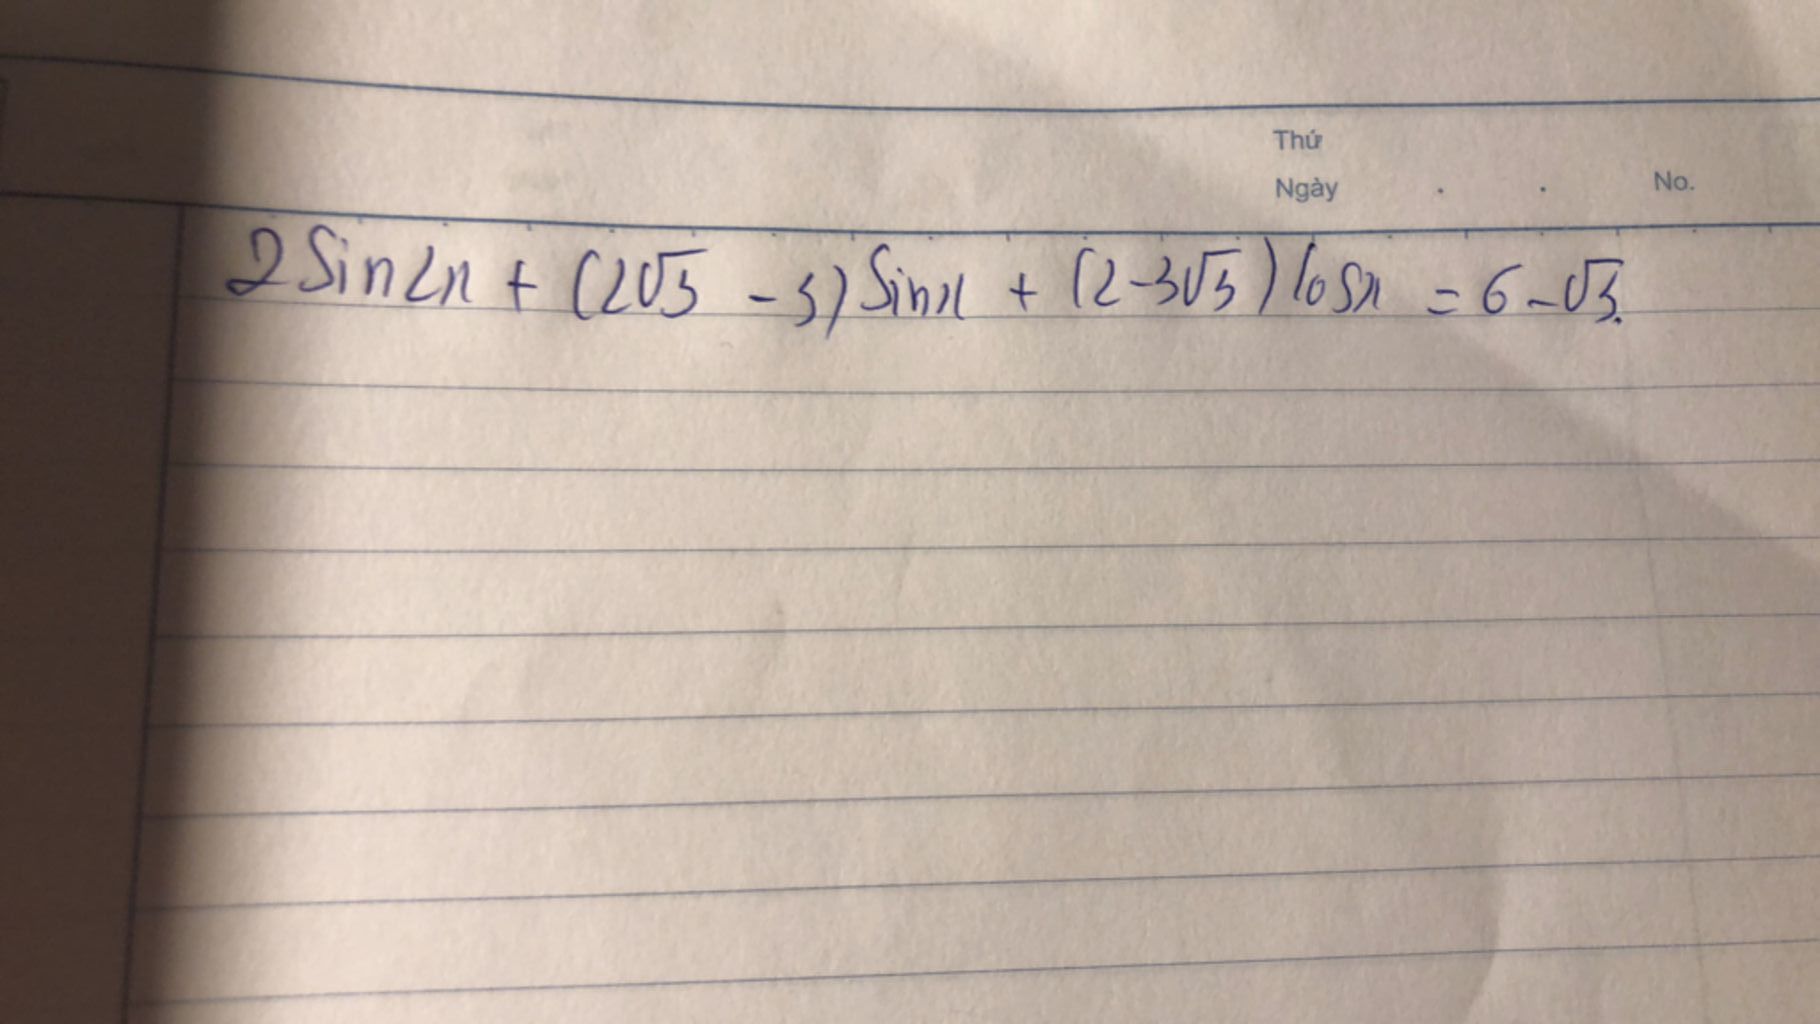 Thứ
Ngày . . No.
2Sin2x + (2√3 - 3) Sinx + (2-3√3) Cosx = 6-√3.